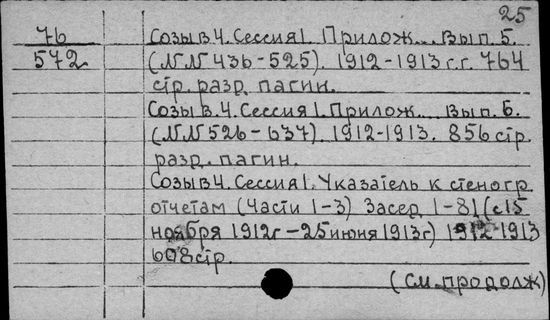 25
76
572
Созыв 4. Сессия 1. Прилож... Вып. 5.
(NN 436-525). 1912-1913 г.г. 764
стр. разд. пагин.
Созыв 4. Сессия 1. Прилож... Вып. 6.
(NN 526-637). 1912-1913. 856 стр.
разд. пагин.
Созыв 4. Сессия 1. Указатель к стеногр.
отчетам (Части 1-3) Засед. 1-81 (с 15
ноября 1912г - 25 июня 1913г) 1912-1913
608 стр.
(см. продолж)